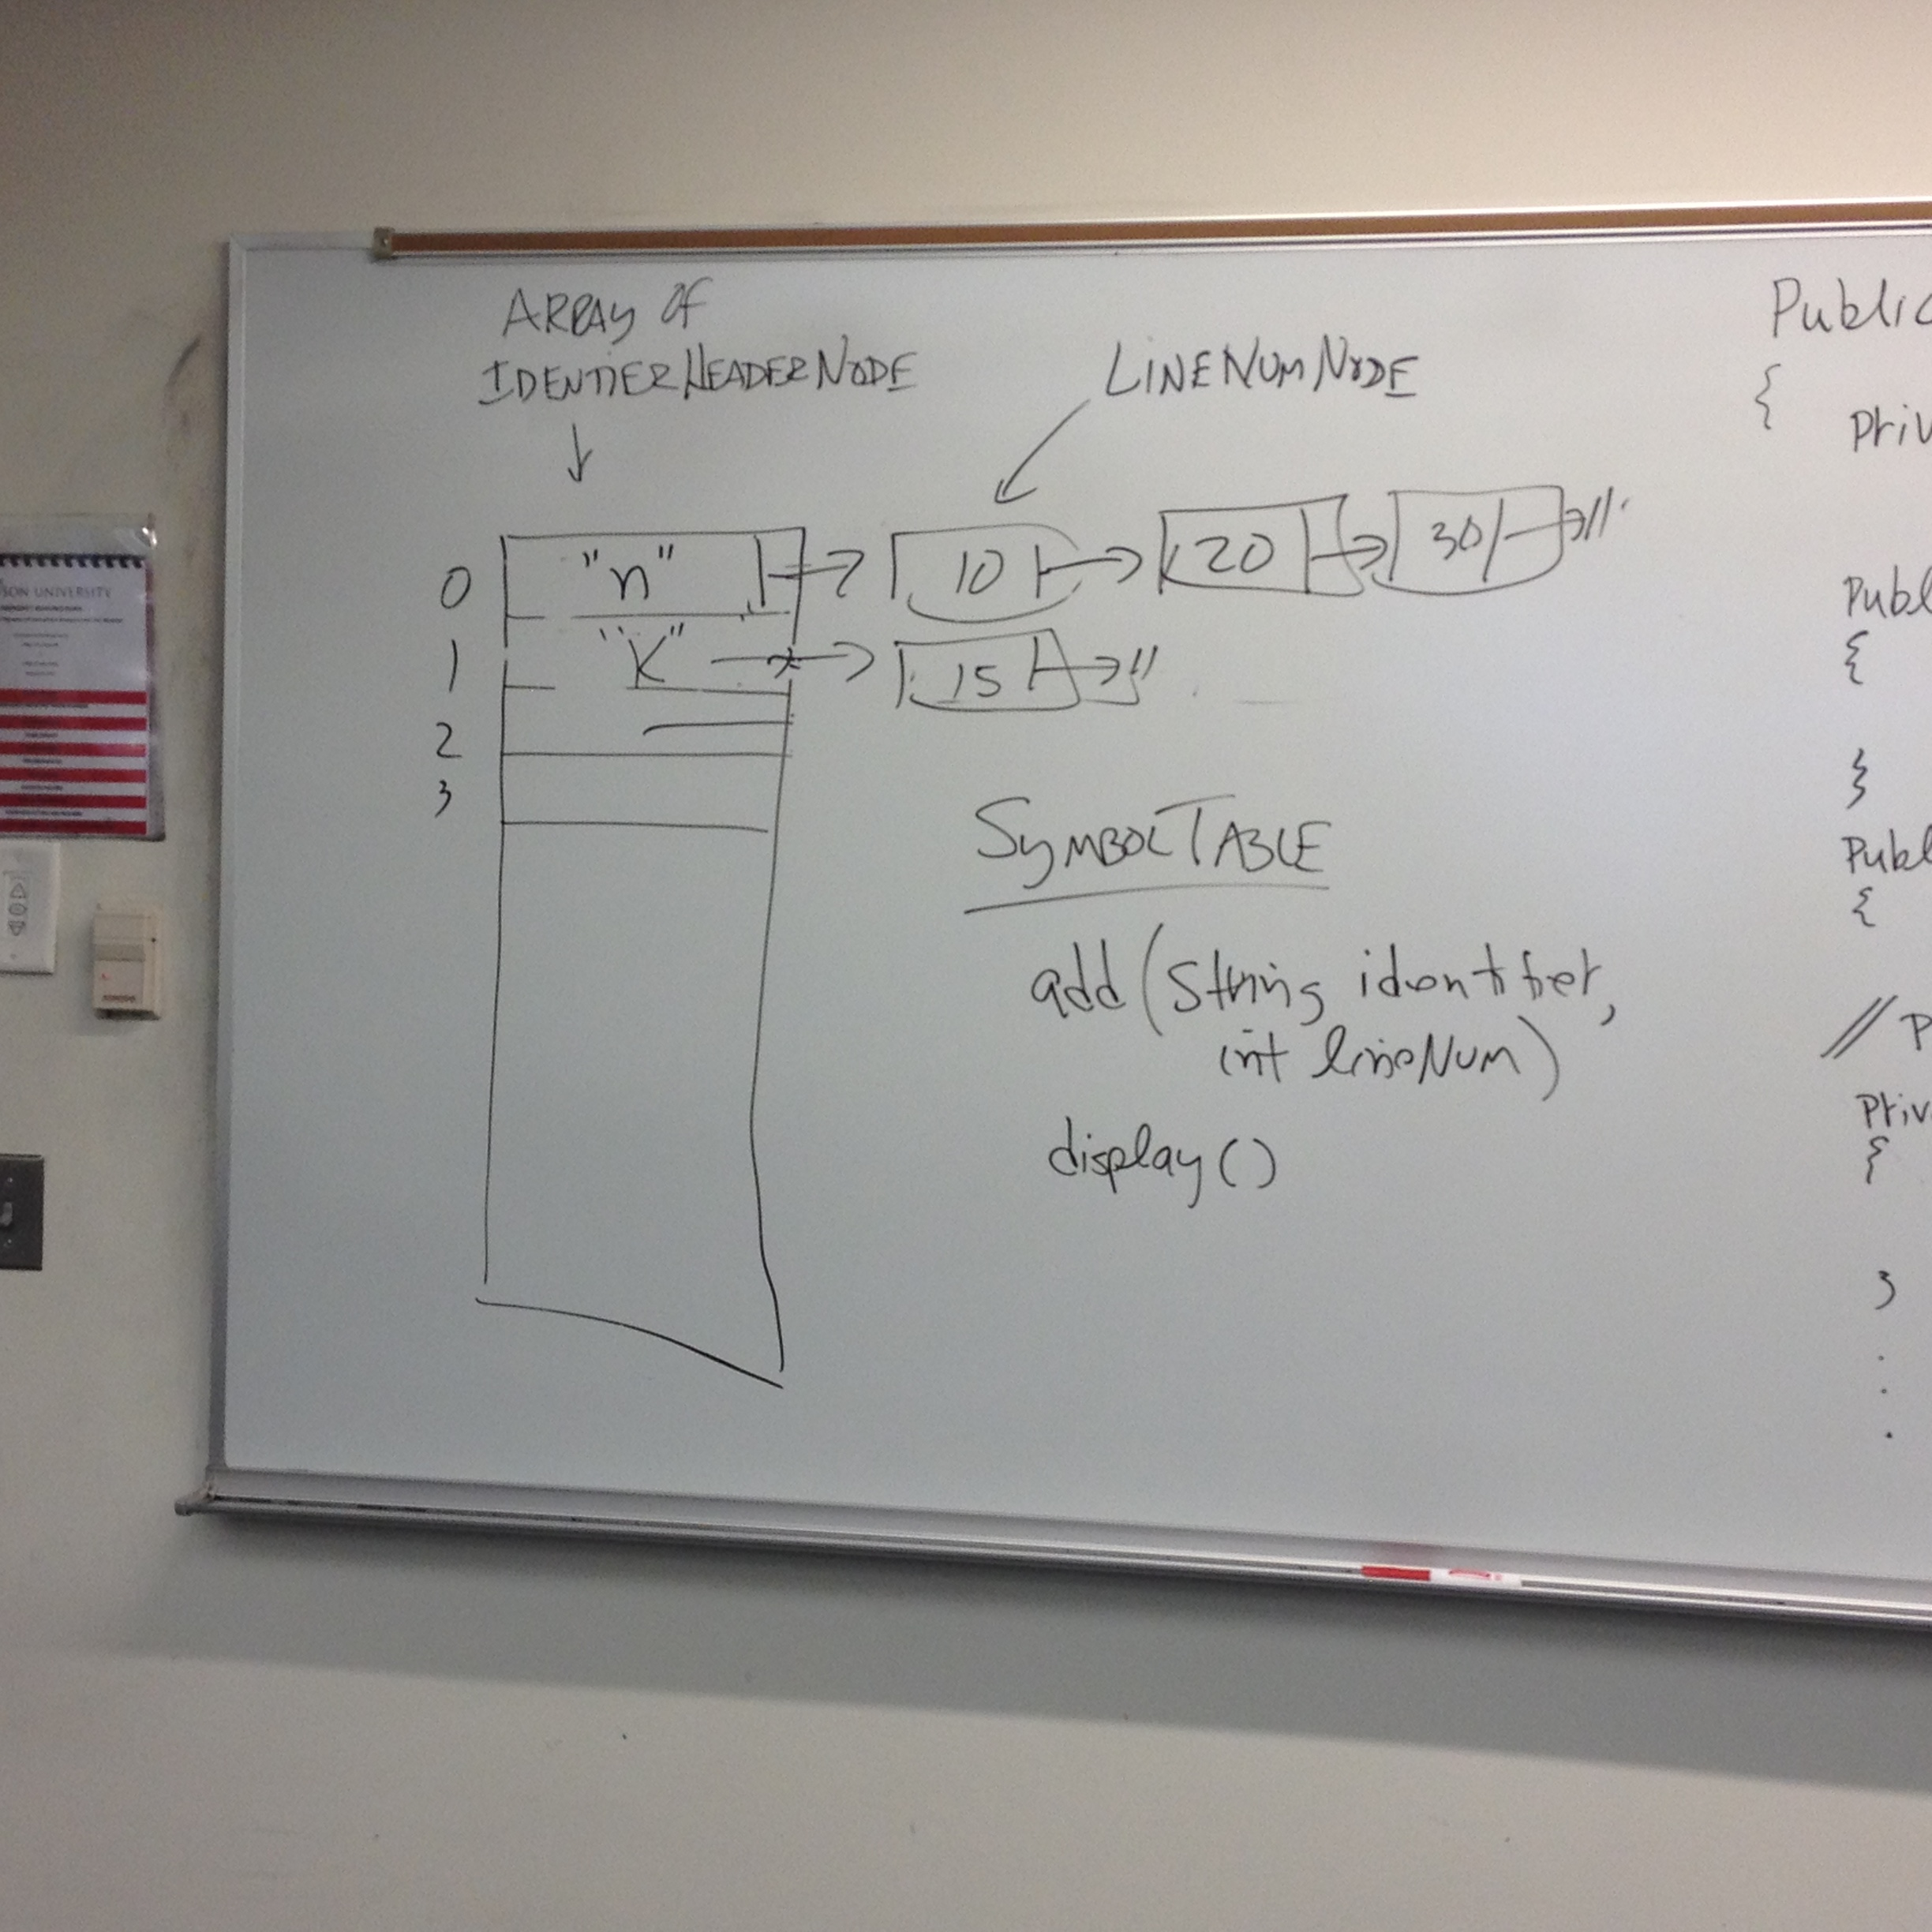 ARRAY OF
IDENTIERHEADERNODE
LINENUMNODE
0 "n" 10 20 30
1 "K" 15
2
3
SYMBOLTABLE
add(String identifier,
int lineNum)
display()
Public
{
Priv
Publ
{
}
Publ
{
// P
Priv
{
}
.
.
.
SON UNIVERSITY